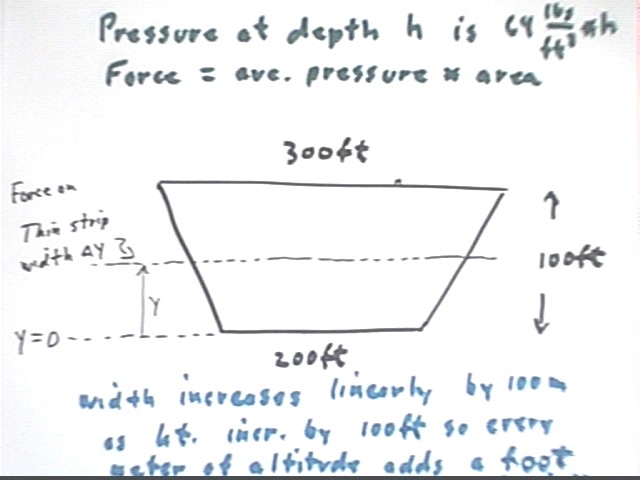 Pressure at depth h is 64 lbs/ft³ * h
Force = ave. pressure * area
300ft
Force on
Thin strip
width ΔY
100ft
Y
Y=0
200ft
width increases linearly by 100m
as ht. incr. by 100ft so every
meter of altitude adds a foot